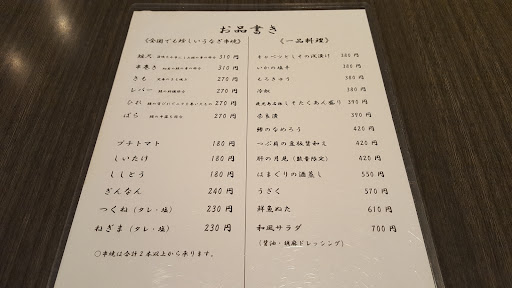 お品書き
《全国でも珍しいうなぎ串焼》
短尺 310 円
串巻き 310 円
きも 270 円
レバー 270 円
ひれ 270 円
ばら 270 円
プチトマト 180 円
しいたけ 180 円
ししとう 180 円
ぎんなん 240 円
つくね（タレ・塩） 230 円
ねぎま（タレ・塩） 230 円
○串焼は合計2本以上から承ります。
《一品料理》
キャベツとしその浅漬け 380 円
いかの塩辛 380 円
もろきゅう 380 円
冷奴 380 円
鹿児島名物しそたくあん盛り 390 円
奈良漬 390 円
鯵のなめろう 420 円
つぶ貝の直販賛和え 420 円
肝の月見（数量限定） 420 円
はまぐりの酒蒸し 550 円
うざく 570 円
鮮魚ぬた 610 円
和風サラダ 700 円
（醤油・胡麻ドレッシング）